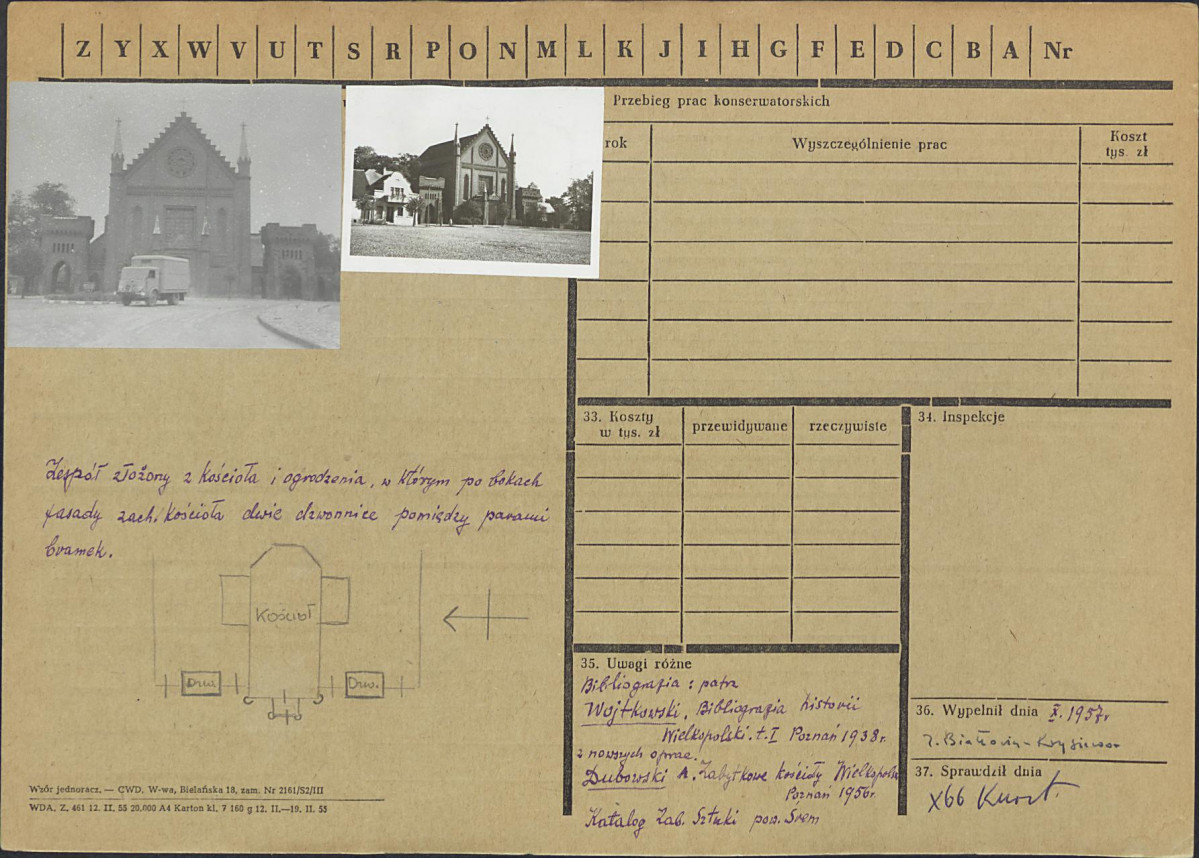 Z Y X W V U T S R P O N M L K J I H G F E D C B A Nr
Przebieg prac konserwatorskich
rok
Wyszczególnienie prac
Koszt
tys. zł
33. Koszty
w tys. zł
przewidywane
rzeczywiste
34. Inspekcje
Zespół złożony z kościoła i ogrodzenia, w którym po bokach
fasady zach. kościoła dwie dzwonnice pomiędzy parami
bramek.
Kościół
Dzw.
Dzw.
35. Uwagi różne
Bibliografia : patrz
Wojtkowski, Bibliografia historii
Wielkopolski. t. I Poznań 1938r.
z nowszych oprac.
Dubowski A. Zabytkowe kościoły Wielkopolski
Poznań 1956r.
Katalog Zab. Sztuki pow. Śrem
36. Wypełnił dnia X. 1957r
37. Sprawdził dnia
X66
Wzór jednoracz. — CWD, W-wa, Bielańska 18, zam. Nr 2161/S2/III
WDA. Z. 461 12. II. 55 20.000 A4 Karton kl. 7 160 g 12. II.—19. II. 55